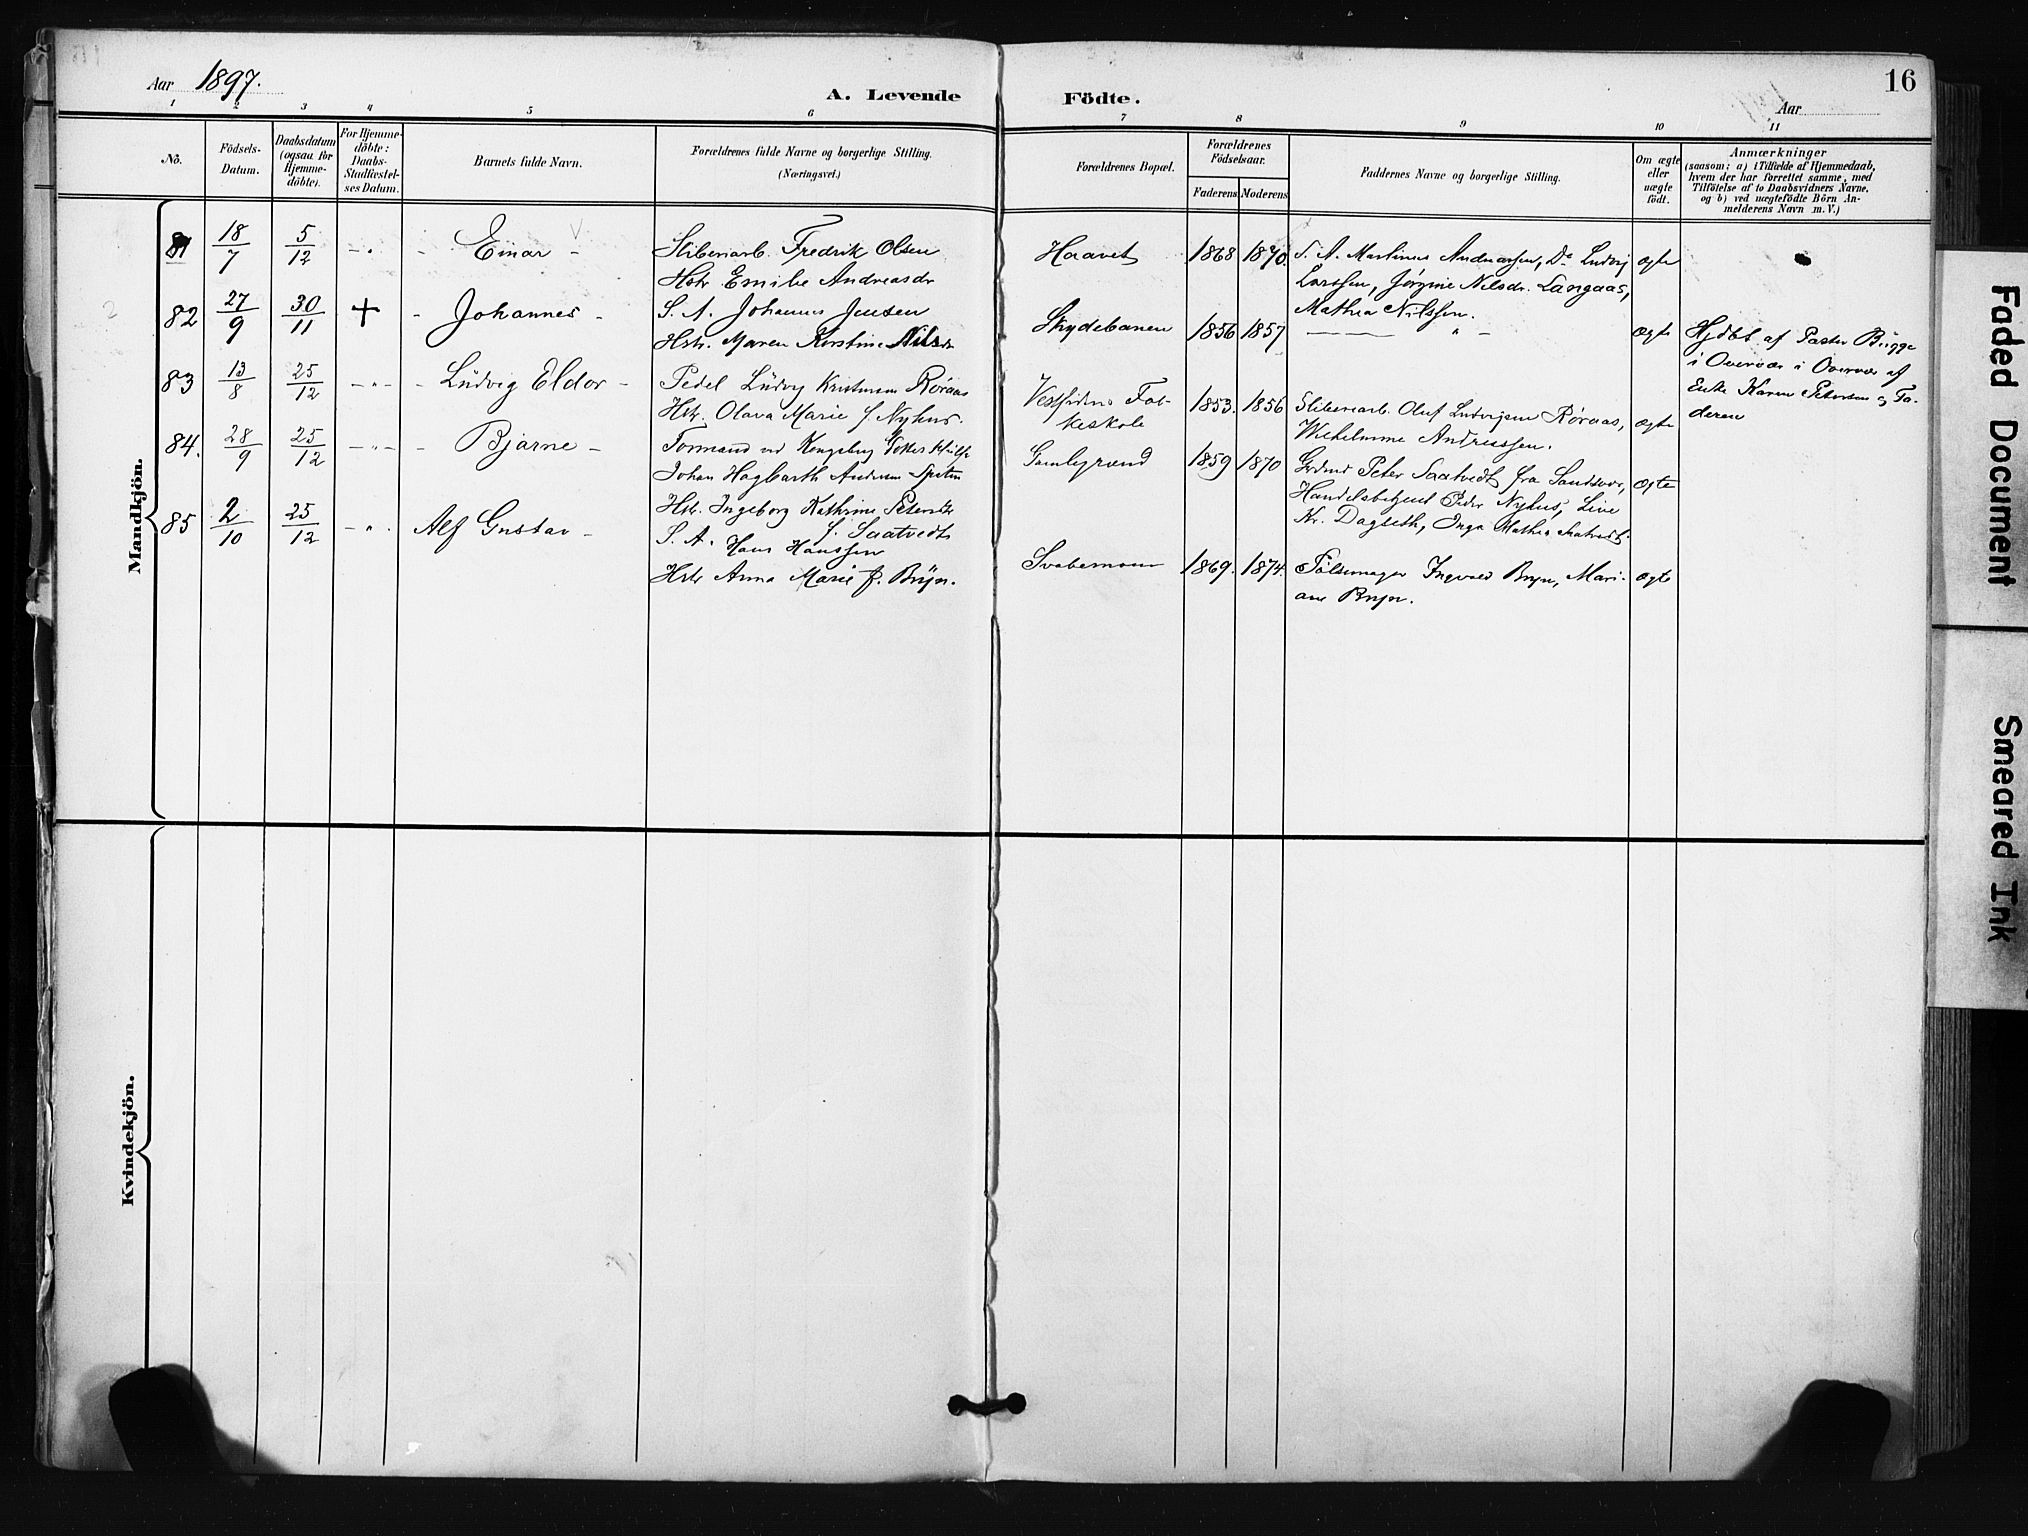 Aar 1897.
A. Levende Födte.
Aar
16
1 2 3 4 5 6 7 8 9 10 11
No.
Födsels-Datum.
Daabsdatum (ogsaa for Hjemme-döbte).
For Hjemme-döbte: Daabs-Stadfæstel-ses Datum.
Barnets fulde Navn.
Forældrenes fulde Navne og borgerlige Stilling. (Næringsvei.)
Forældrenes Bopæl.
Forældrenes Födselsaar.
Faderens Moderens
Faddernes Navne og borgerlige Stilling.
Om ægte eller uægte födt.
Anmærkninger
(saasom: a) i Tilfælde af Hjemmedaab,
hvem der har forrettet samme, med
Tilföielse af to Daabsvidners Navne.
og b) ved uægtefödte Börn An-
melderens Navn m. V.)
Mandkjön.
81 18/7 5/12 Einar
Sliberiarb. Fredrik Olsen
Hstr Emilie Andreasdr
Haavet 1868 1870.
S. A. Martinus Andreassen, Do Ludvig
Larssen, Jørgine Nilsdr. Langaas,
Mathea Nilssen.
ægte
82 27/9 30/11 + Johannes
S. A. Johannes Jensen
Hstr. Maren Kirstine Nilsdr
Skydebanen 1856 1857 ægte
Hjdbt af Pastor Brigge
i Overvær i Overvær af
Enke Karen Petersen og Fa-
deren
83 13/8 25/12 Ludvig Eldor
Pedel Ludvig Kristensen Røraas
Hstr. Olava Marie f. Nyhus.
Vestsidens Fol-
keskole 1853. 1856
Sliberiarb. Oluf Ludvigsen Røraas,
Wilhelmine Andreassen.
ægte
84. 28/9 25/12 Bjarne
Formand ved Kongsberg
Johan Hagbarth Andersen
Hstr. Ingeborg Kathrine Petersdtr
f. Saatvedt
Gamlegrænd 1859 1870
Grdmd Peter Saatvedt fra Sandsvær,
Handelsbetjent Peder Nyhus, Live
Kr. Dagseth, Inga Mathea Saatvedt.
ægte
85 2/10 25/12 Alf Gustav
S. A. Hans Hanssen
Hstr Anna Marie f. Bryn.
1869. 1874.
Pølsemager Ingvald Bryn, Mari-
ane Bryn.
ægte
Kvindekjön.
Faded Document
Smeared Ink